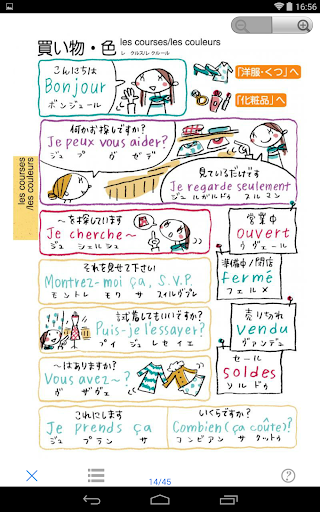 16:56
買い物・色 les courses/les couleurs
レ クルス/レ クルール
こんにちは
Bonjour
ボンジュール
「洋服・くつ」へ
「化粧品」へ
何かお探しですか?
Je peux vous aider?
ジュ プ ヴ ゼデ
les courses
/les couleurs
見ているだけです
Je regarde seulement
ジュ ルガルドゥ スルマン
~を探しています
Je cherche~
ジュ シェルシュ
営業中
ouvert
ウヴェール
それを見せて下さい
Montrez-moi ça, S.V.P.
モントレ モワ サ スィルヴプレ
準備中/閉店
fermé
フェルメ
試着してもいいですか?
Puis-je l'essayer?
プイ ジュ レセイエ
売り切れ
vendu
ヴァンデュ
~はありますか?
Vous avez~?
ヴ ザヴェ
セール
soldes
ソルドゥ
これにします
Je prends ça
ジュ プラン サ
いくらですか?
Combien(ça coûte)?
コンビアン サ クットゥ
14/45